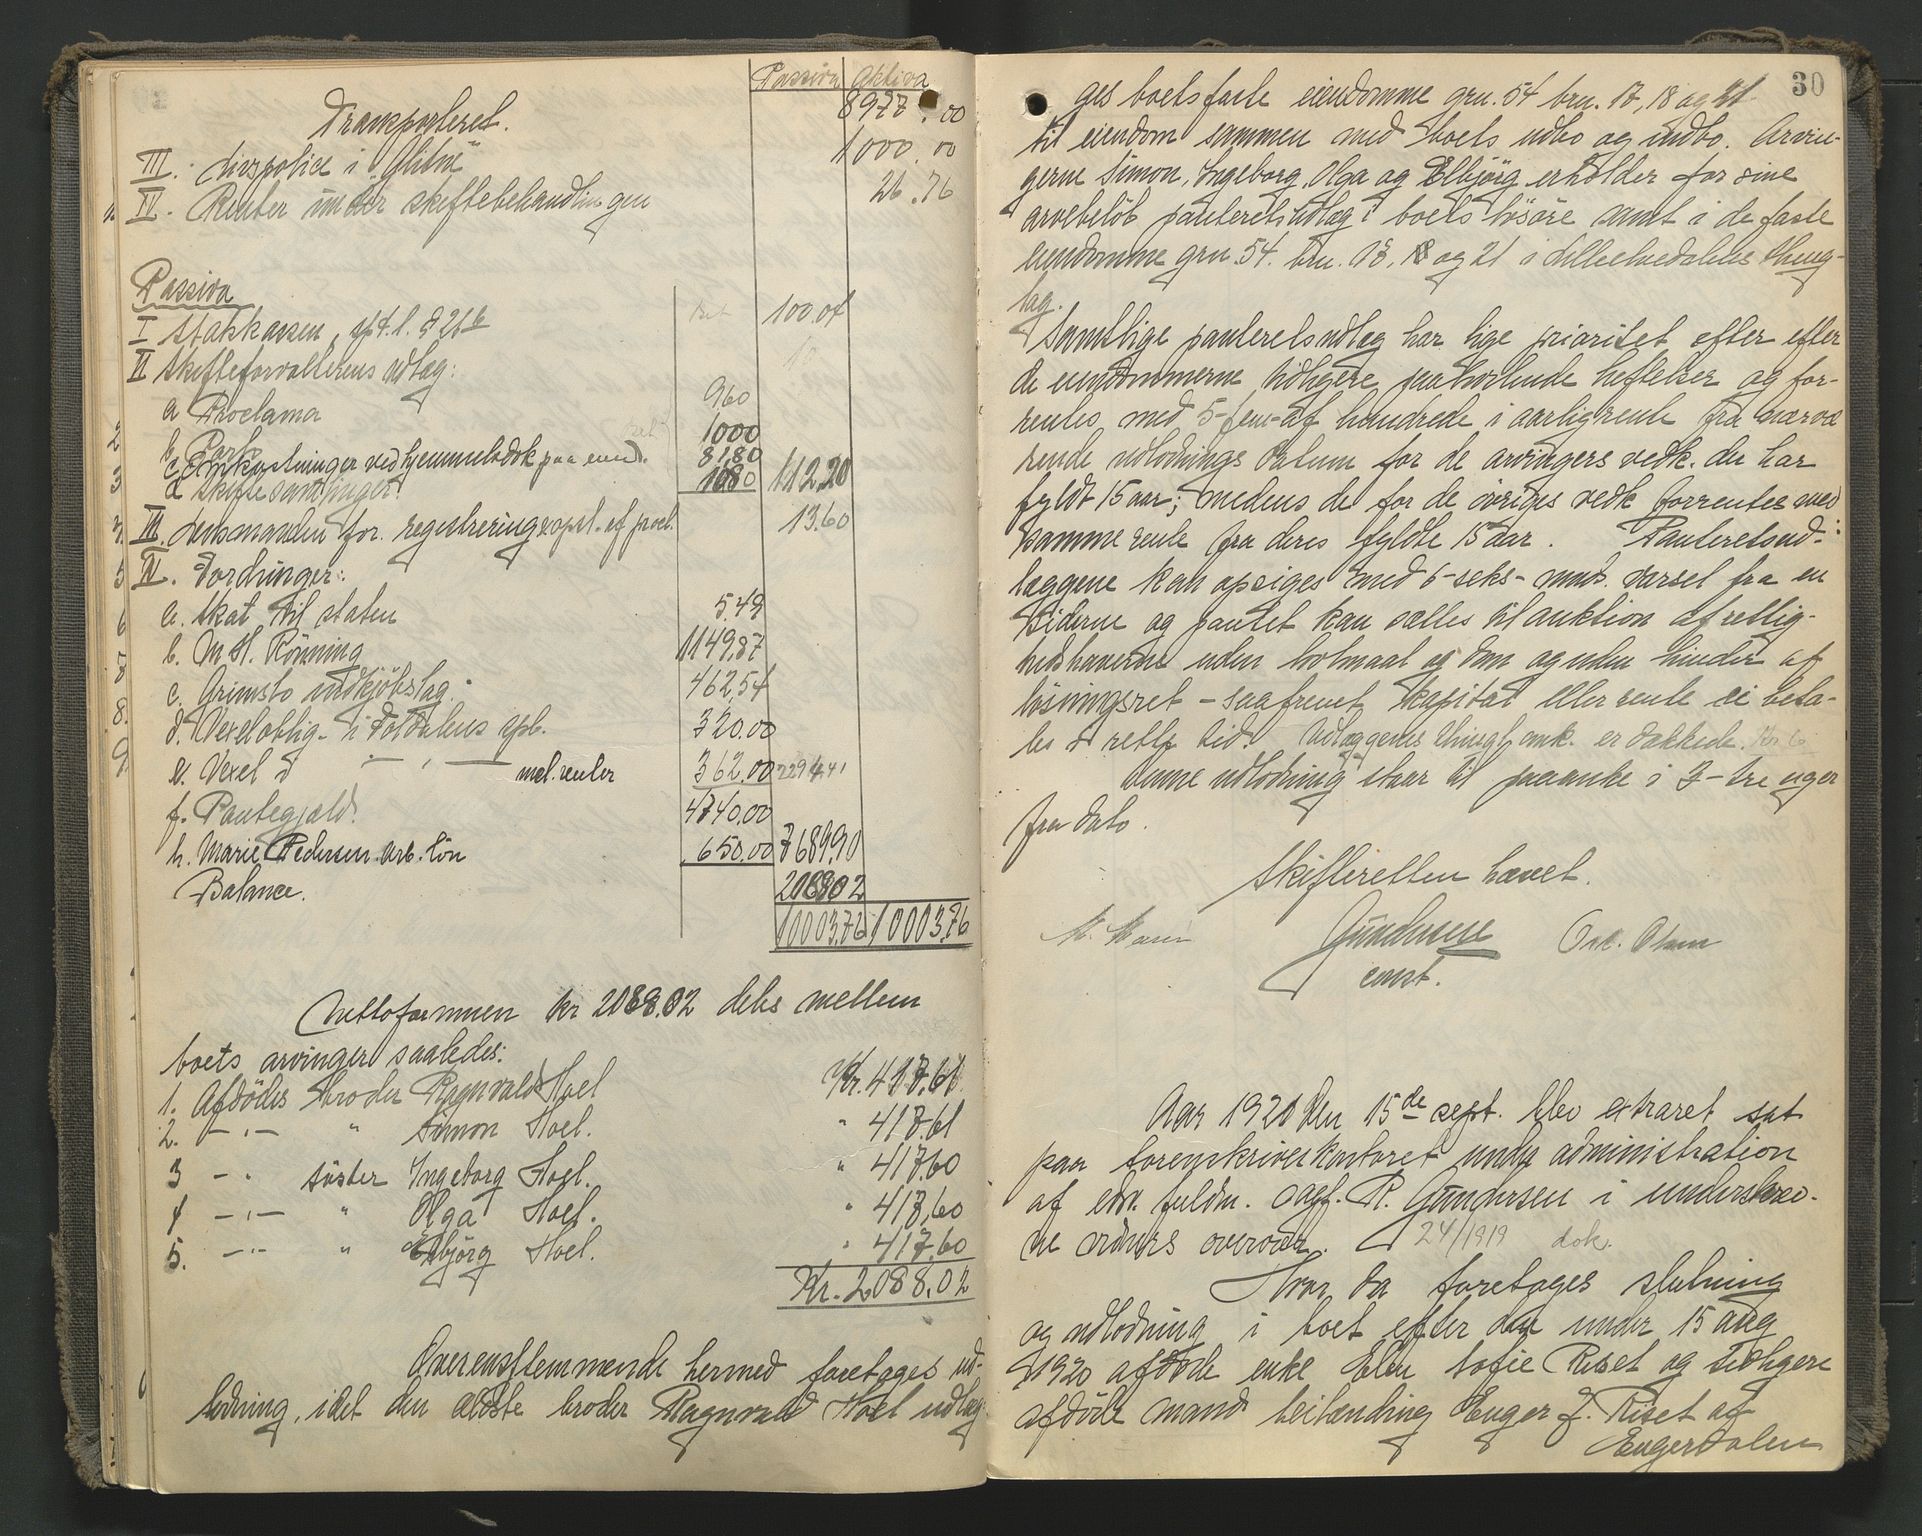 Passiva Aktiva
Transporteret. 8977.00
III. Livspolice i "Glitne" 1000.00
IV. Renter under skiftebehandlingen 26.76
Passiva
I Statskassen, 100.07
II Skifteforvalterens udlæg:
a Proclama 960
b. Porto 1000
c Omkostninger ved hjemmelsdok paa eiend. 81,80
d Skiftesamlinger 1080 112,20
III. Lensmanden for registrering 13.60
IV. Fordringer:
a. Skat til staten 5.49
b. M H. Rönning 1149,87
c. Grimsbo indkjöbslag. 462,54
d. Vexeloblig. i Foldalens spb. 320.00
e. Vexel i — " — mel. renter 362,00 2294.41
f. Pantegjæld. 4740,00
h. Marie Pedersen arb. lön 650,00 7689,90
Balance. 2088,02
10003,76 10003,76
Nettoformuen kr 2088.02 deles mellem
boets arvinger saaledes:
1. Afdödes broder Ragnvald Hoel Kr. 417.61
2. — " — " Simon Hoel. " 417.61
3 — " söster Ingeborg Hoel. " 417.60
4 — " — " Olga Hoel. " 417,60
5. — " — " Elbjörg Hoel. " 417.60
Kr. 2088.02
Overensstemmende hermed foretages ud-
lodning, idet den ældste broder Ragnvald Hoel udlæg-
30
ges boets faste eiendomme gru. 54 bru. 17, 18 og 21
til eiendom sammen med boets udbo og indbo. Arvin-
gerne Simon, Ingeborg, Olga og Elbjörg erholder for sine
arvebeløb panteretsudlæg i boets lösöre samt i de faste
eiendomme gru. 54. bru. 17, 18 og 21 i Lilleelvedalens thing-
lag.
Samtlige panteretsudlæg har lige prioritet efter
de eiendommerne tidligere paahvilende heftelser og for-
rentes med 5-fem-af hundrede i aarlig rente fra nærvæ
rende udlodnings datum for de arvingers vedk. der har
fyldt 15 aar; medens de for de övriges vedk forrentes med
samme rente fra deres fyldte 15 aar. Panteretsud-
læggene kan opsiges med 6-seks-mndr. varsel fra en
af siderne og pantet kan sættes til auktion af rettig-
hedshaverne uden lovmaal og dom og uden hinder af
løsningsret - saafremt kapital eller rente ei beta-
les i rette tid. Udlæggenes thingl. omk. er dækkede. Kr 6
Denne udlodning staar til paaanke i 3-tre uger
fra dato.
Skifteretten hævet.
Gundersen Osk. Olsen
const.
Aar 1920 den 15de sept. blev extraret sat
paa sorenskriverkontoret under administration
af edv. fuldm. sagf. R. Gundersen i underskrev-
ne vidners overvær. 24/1919 dok.
Hvor da foretoges slutning
og udlodning i boet efter den under 15 aug
1920 afdöde enke Elen Sofie Riset og tidligere
afdöde mand leilænding Enger J. Riset af
Engerdalen